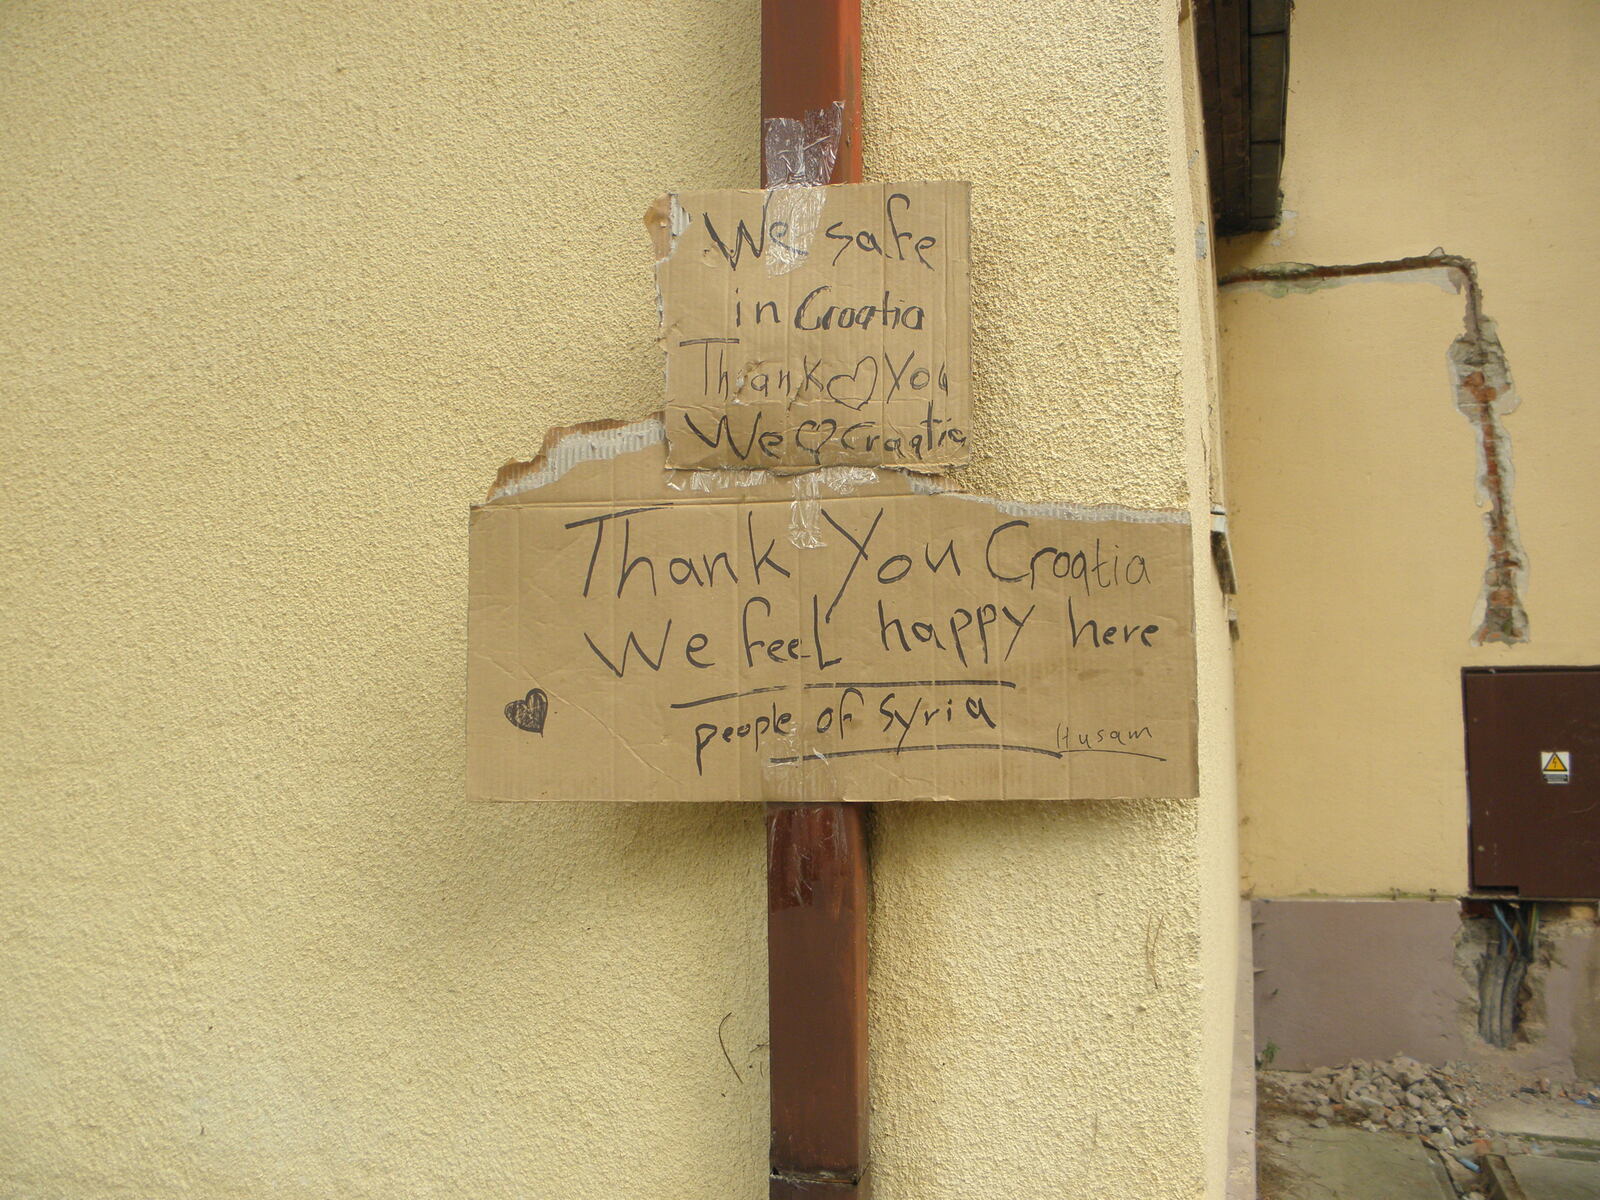 We safe
in Croatia
Thank ♡ You
We ♡ Croatia
Thank You Croatia
We feel happy here
people of syria
Husam